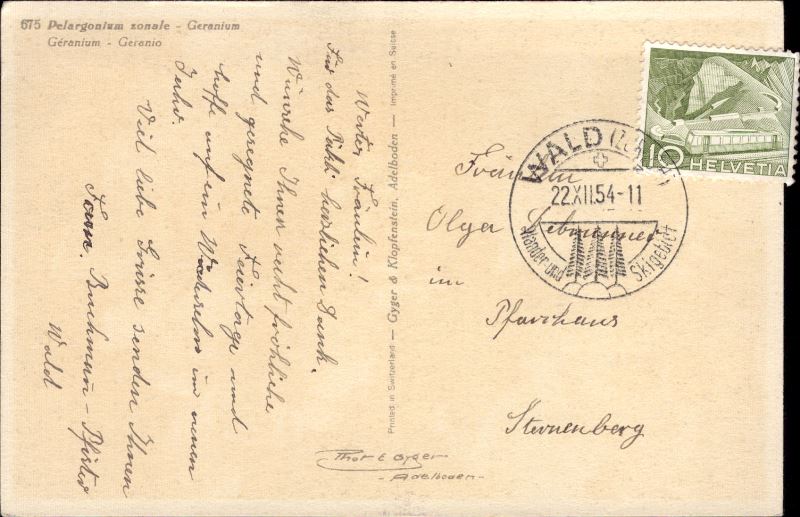 675 Pelargonium zonale - Geranium
Géranium - Geranio
Werter Fräulein!
Für das Päkli herzlichen Dank.
Wünsche Ihnen recht fröhliche
und gesegnete Feiertage und
hoffe auf ein Wiedersehn im neuen
Jahr.
Viel liebe Grüsse senden Ihnen
Fam. Buchmann - Pfister
Wald
Printed in Switzerland — Gyger & Klopfenstein, Adelboden — Imprimé en Suisse
Phot E Gyger
- Adelboden -
WALD (ZÜRICH)
22.XII.54-11
Wander- und Skigebiet
10 HELVETIA
Fräulein
Olga
im
Pfarrhaus
Sternenberg